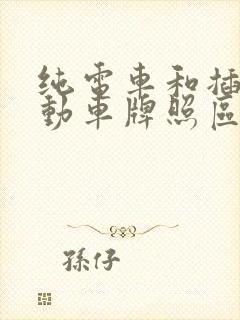 纯電車和插
動車牌照區
孫仔